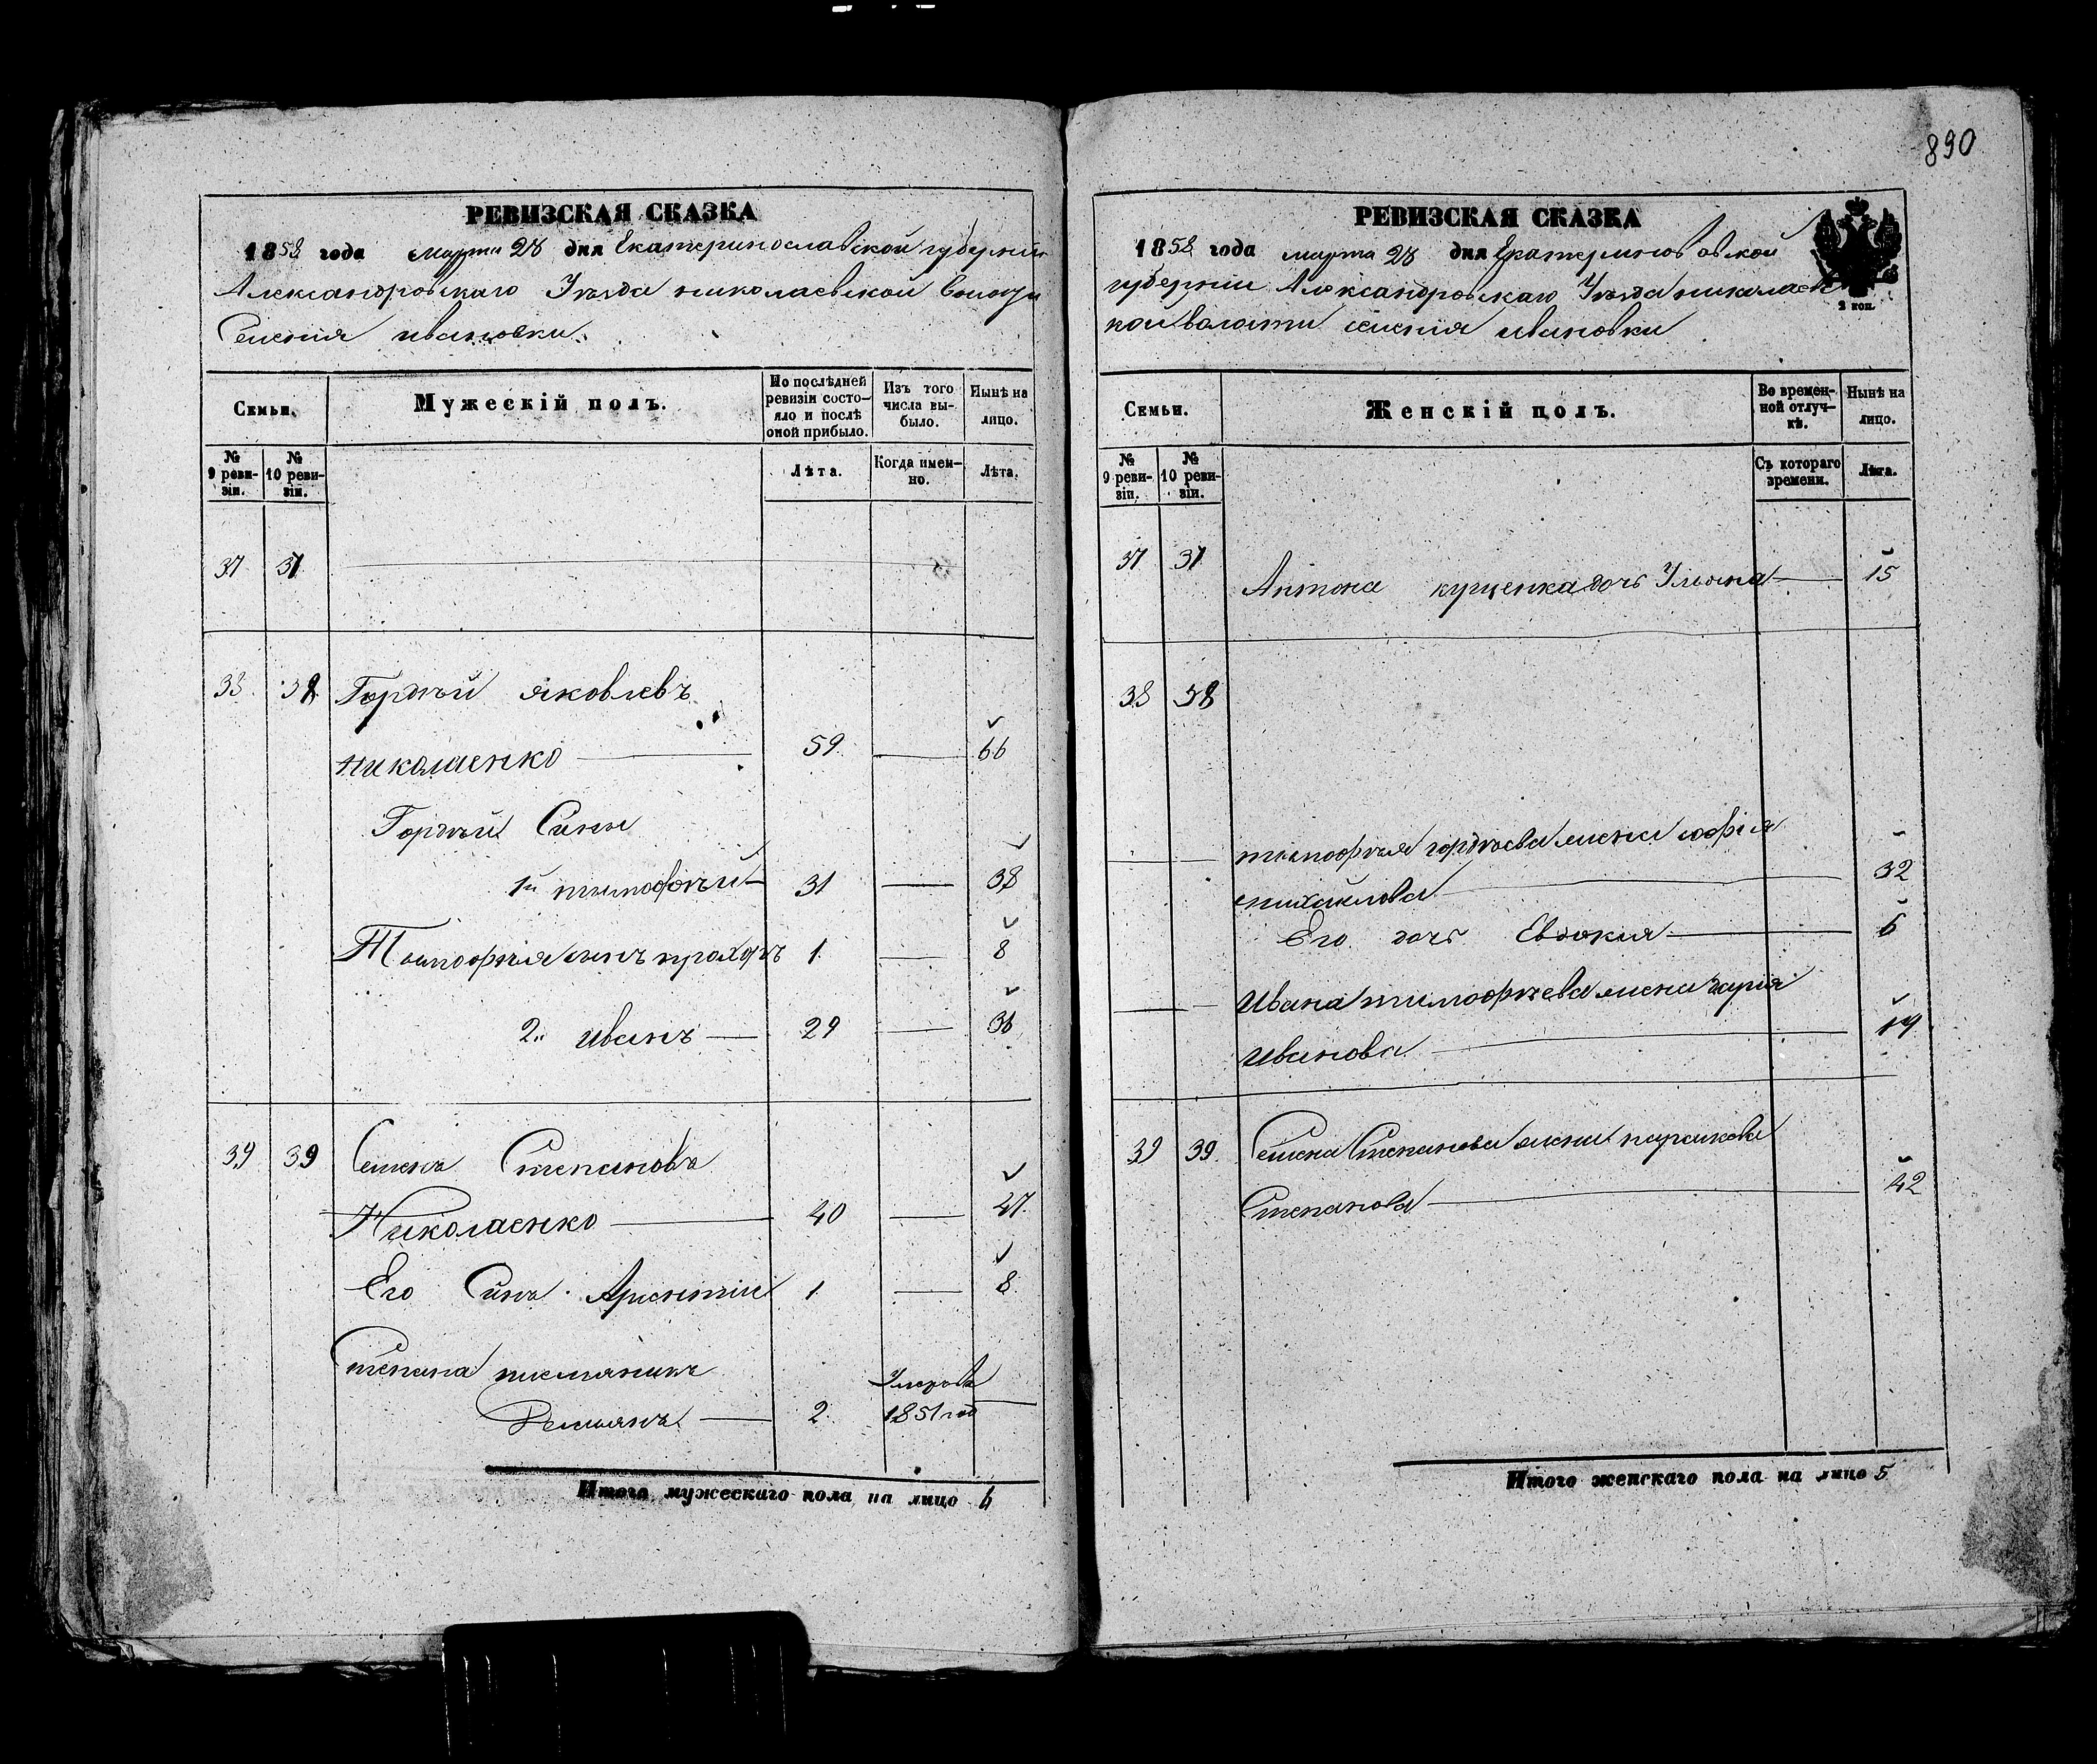 890
РЕВИЗСКАЯ СКАЗКА
1858 года марта 28 дня Екатеринославской губернии
Александровскаго Уезда николаевской Волости
Селения ивановки.
Семьи.
Мужескій полъ.
По послѣдней ревизіи состояло и послѣ оной прибыло.
Изъ того числа выбыло.
Нынѣ на лицо.
№ 9 ревизіи.
№ 10 ревизіи.
Лѣта.
Когда именно.
Лѣта.
37 37
38 Гордѣй яковлевъ
николаенко 59. 66
Гордѣй Сины
1й тимофѣй 31 38
Тимофѣя сынъ 1. 8
2й иванъ 29 36
39 39 Семенъ Степановъ
Николаенко 40 47.
Его Синъ Арсентій 1 8.
Степана племяникъ
Демьянъ 2. Умеръ в 1851 год
Итого мужескаго пола на лицо 6
РЕВИЗСКАЯ СКАЗКА
1858 года марта 28 дня
губернии Александровскаго Уезда николаевс
кой валости селения ивановки
2 коп.
Семьи.
Женскій полъ.
Во временной отлучкѣ.
Нынѣ на лицо.
№ 9 ревизіи.
№ 10 ревизіи.
Съ котораго времени.
Лѣта.
37 37
Антона куценка дочь Ульяна 15
38 38
тимофѣя гордѣева жена софія
михайлова 32
Его дочь Евдокия 6
Ивана тимофѣева жена
иванова 19
39 39. Семена Степанова жена
Степанова 42
Итого женскаго пола на лицо 5